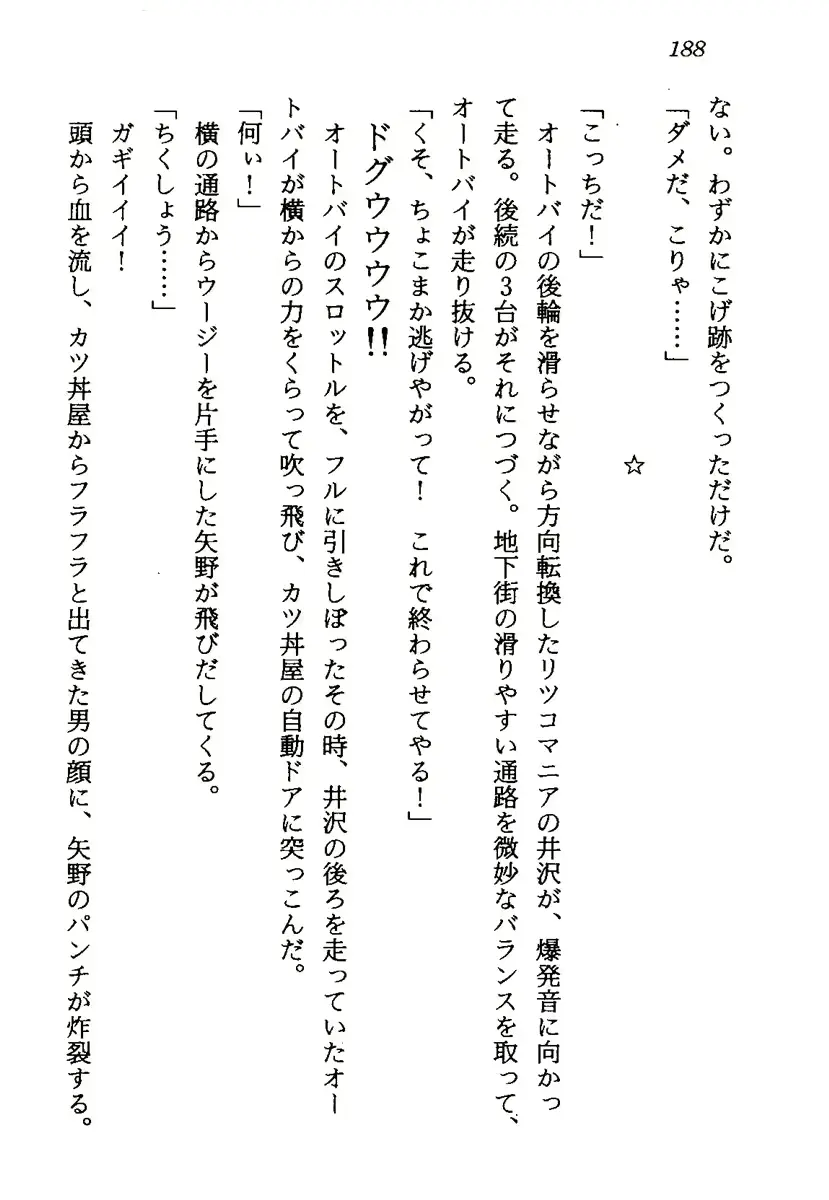 188
ない。わずかにこげ跡をつくっただけだ。
「ダメだ、こりゃ……」
☆
「こっちだ！」
オートバイの後輪を滑らせながら方向転換したリツコマニアの井沢が、爆発音に向かっ
て走る。後続の3台がそれにつづく。地下街の滑りやすい通路を微妙なバランスを取って、
オートバイが走り抜ける。
「くそ、ちょこまか逃げやがって！　これで終わらせてやる！」
ドグウウウウ!!
オートバイのスロットルを、フルに引きしぼったその時、井沢の後ろを走っていたオー
トバイが横からの力をくらって吹っ飛び、カツ丼屋の自動ドアに突っこんだ。
「何ぃ！」
横の通路からウージーを片手にした矢野が飛びだしてくる。
「ちくしょう……」
ガギイイイ！
頭から血を流し、カツ丼屋からフラフラと出てきた男の顔に、矢野のパンチが炸裂する。